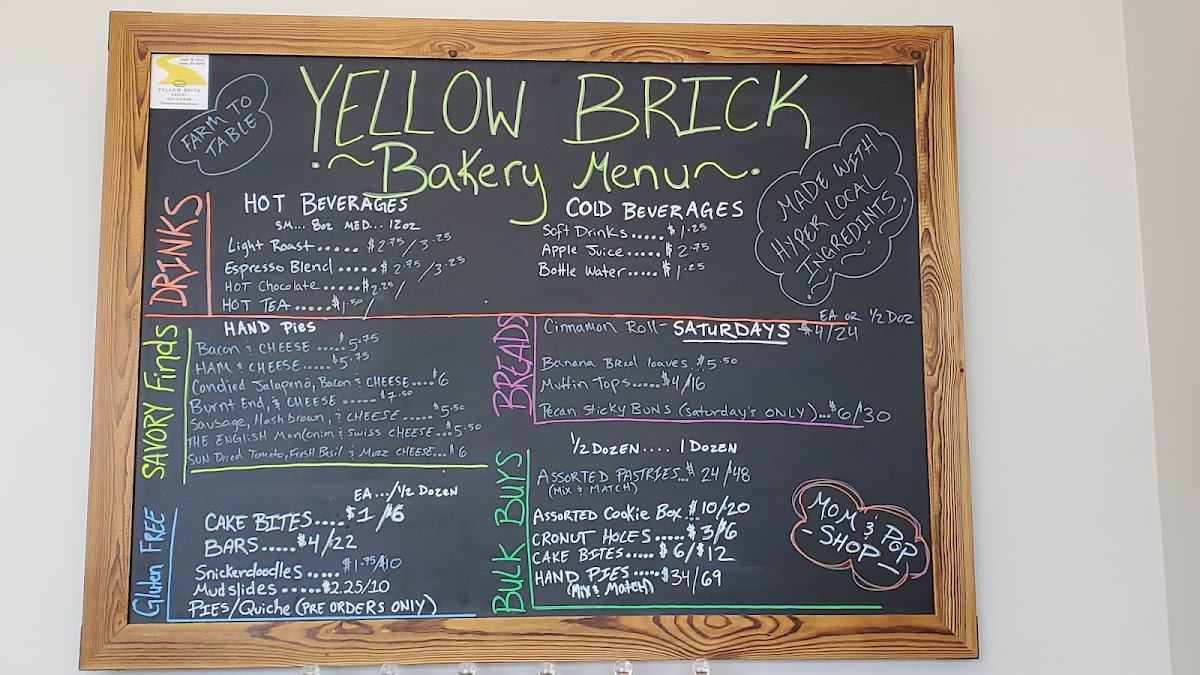 YELLOW BRICK
BAKERY
FARM TO
TABLE
YELLOW BRICK
~ Bakery Menu ~
MADE WITH
HYPER LOCAL
INGREDIENTS
DRINKS
HOT BEVERAGES
SM... 8oz MED... 12oz
Light Roast..... $2.75/3.25
Espresso Blend..... $2.75/3.25
HOT Chocolate..... $2.25/
HOT TEA..... $1.50/
COLD BEVERAGES
Soft Drinks..... $1.25
Apple Juice..... $2.75
Bottle Water..... $1.25
SAVORY Finds
HAND Pies
Bacon & CHEESE ..... $5.75
HAM & CHEESE..... $5.75
Candied Jalapeno, Bacon & CHEESE....$6
Burnt End, & CHEESE ..... $7.50
Sausage, Hashbrown, & CHEESE ..... $5.50
THE ENGLISH Man(onim & Swiss CHEESE...$5.50
SUN Dried Tomato, Fresh Basil & Mozz CHEESE... $6
BREADS
EA OR 1/2 DOZ
Cinnamon Roll- SATURDAYS $4/24
Banana Bread loaves..$5.50
Muffin Tops.....$4/16
Pecan Sticky BUNS (Saturday's ONLY)...$6/30
Gluten FREE
EA.../1/2 DOZEN
CAKE BITES.... $1/$6
BARS.....$4/22
Snickerdoodles ..... $1.75/10
Mudslides.....$2.25/10
PIES/Quiche (PRE ORDERS ONLY)
BULK BUYS
1/2 DOZEN.... 1 DOZEN
ASSORTED PASTRIES...$24/48
(MIX & MATCH)
ASSORTED Cookie Box $10/20
CRONUT HOLES.....$3/6
CAKE BITES.....$6/$12
HAND PIES.....$34/69
(Mix & Match)
MOM & POP
- SHOP -